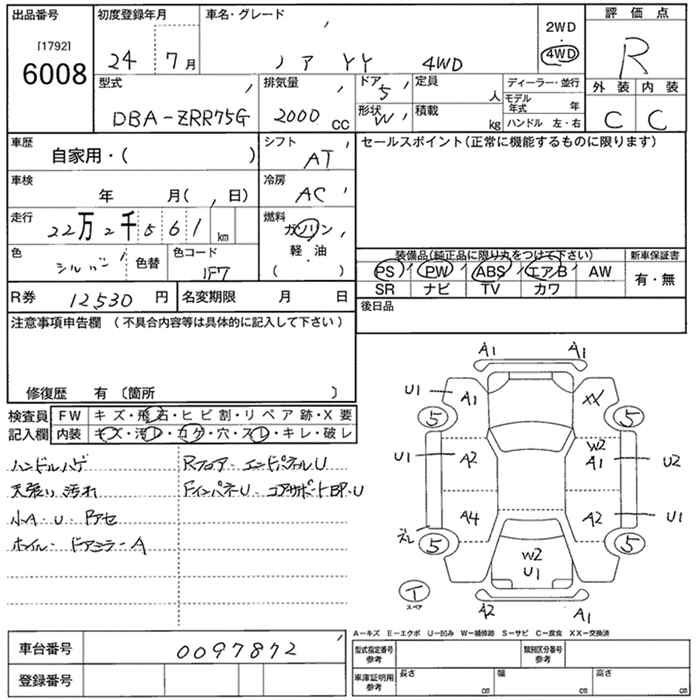 出品番号 初度登録年月 車名・グレード 2WD 評価点
[1792] ・
6008 24 7月 ノア YY 4WD 4WD R
型式 排気量 ドア 5 定員 人 ディーラー・並行 外装 内装
モデル年式 年
DBA-ZRR75G 2000 CC 形状 W 積載 kg ハンドル 左・右 C C
車歴 自家用・( ) シフト AT セールスポイント(正常に機能するものに限ります)
車検 年 月( 日) 冷房 AC
走行 22万2千561 km 燃料 ガソリン
色 シルバー 色替 色コード 1F7 軽・油 ( )
装備品(純正品に限り丸をつけて下さい) 新車保証書
PS PW ABS エアB AW 有・無
SR ナビ TV カワ
R券 12530円 名変期限 月 日 後日品
注意事項申告欄 (不具合内容等は具体的に記入して下さい)
修復歴 有 〔箇所 〕
検査員 FW キズ・飛石・ヒビ割・リペア跡・X要
記入欄 内装 キズ・汚レ・コゲ・穴・スレ・キレ・破レ
ハンドルハゲ Rフロア・エンドパネルU
天張り汚れ FインパネU・コアサポートBP・U
小A・U・Pアセ
ホイル・ドアミラーA
A1 A1
U1 A1 XX
5 5
U1 A2 W2 A1 U2
A4 A2 U1
スレ 5 W2 U1 5
T スペア A2 A1
A−キズ E−エクボ U−凹み W−補修跡 S−サビ C−腐食 XX−交換済
車台番号 0097872 型式指定番号 参考 類別区分番号 参考
登録番号 車庫証明用 参考 長さ cm 幅 cm 高さ cm